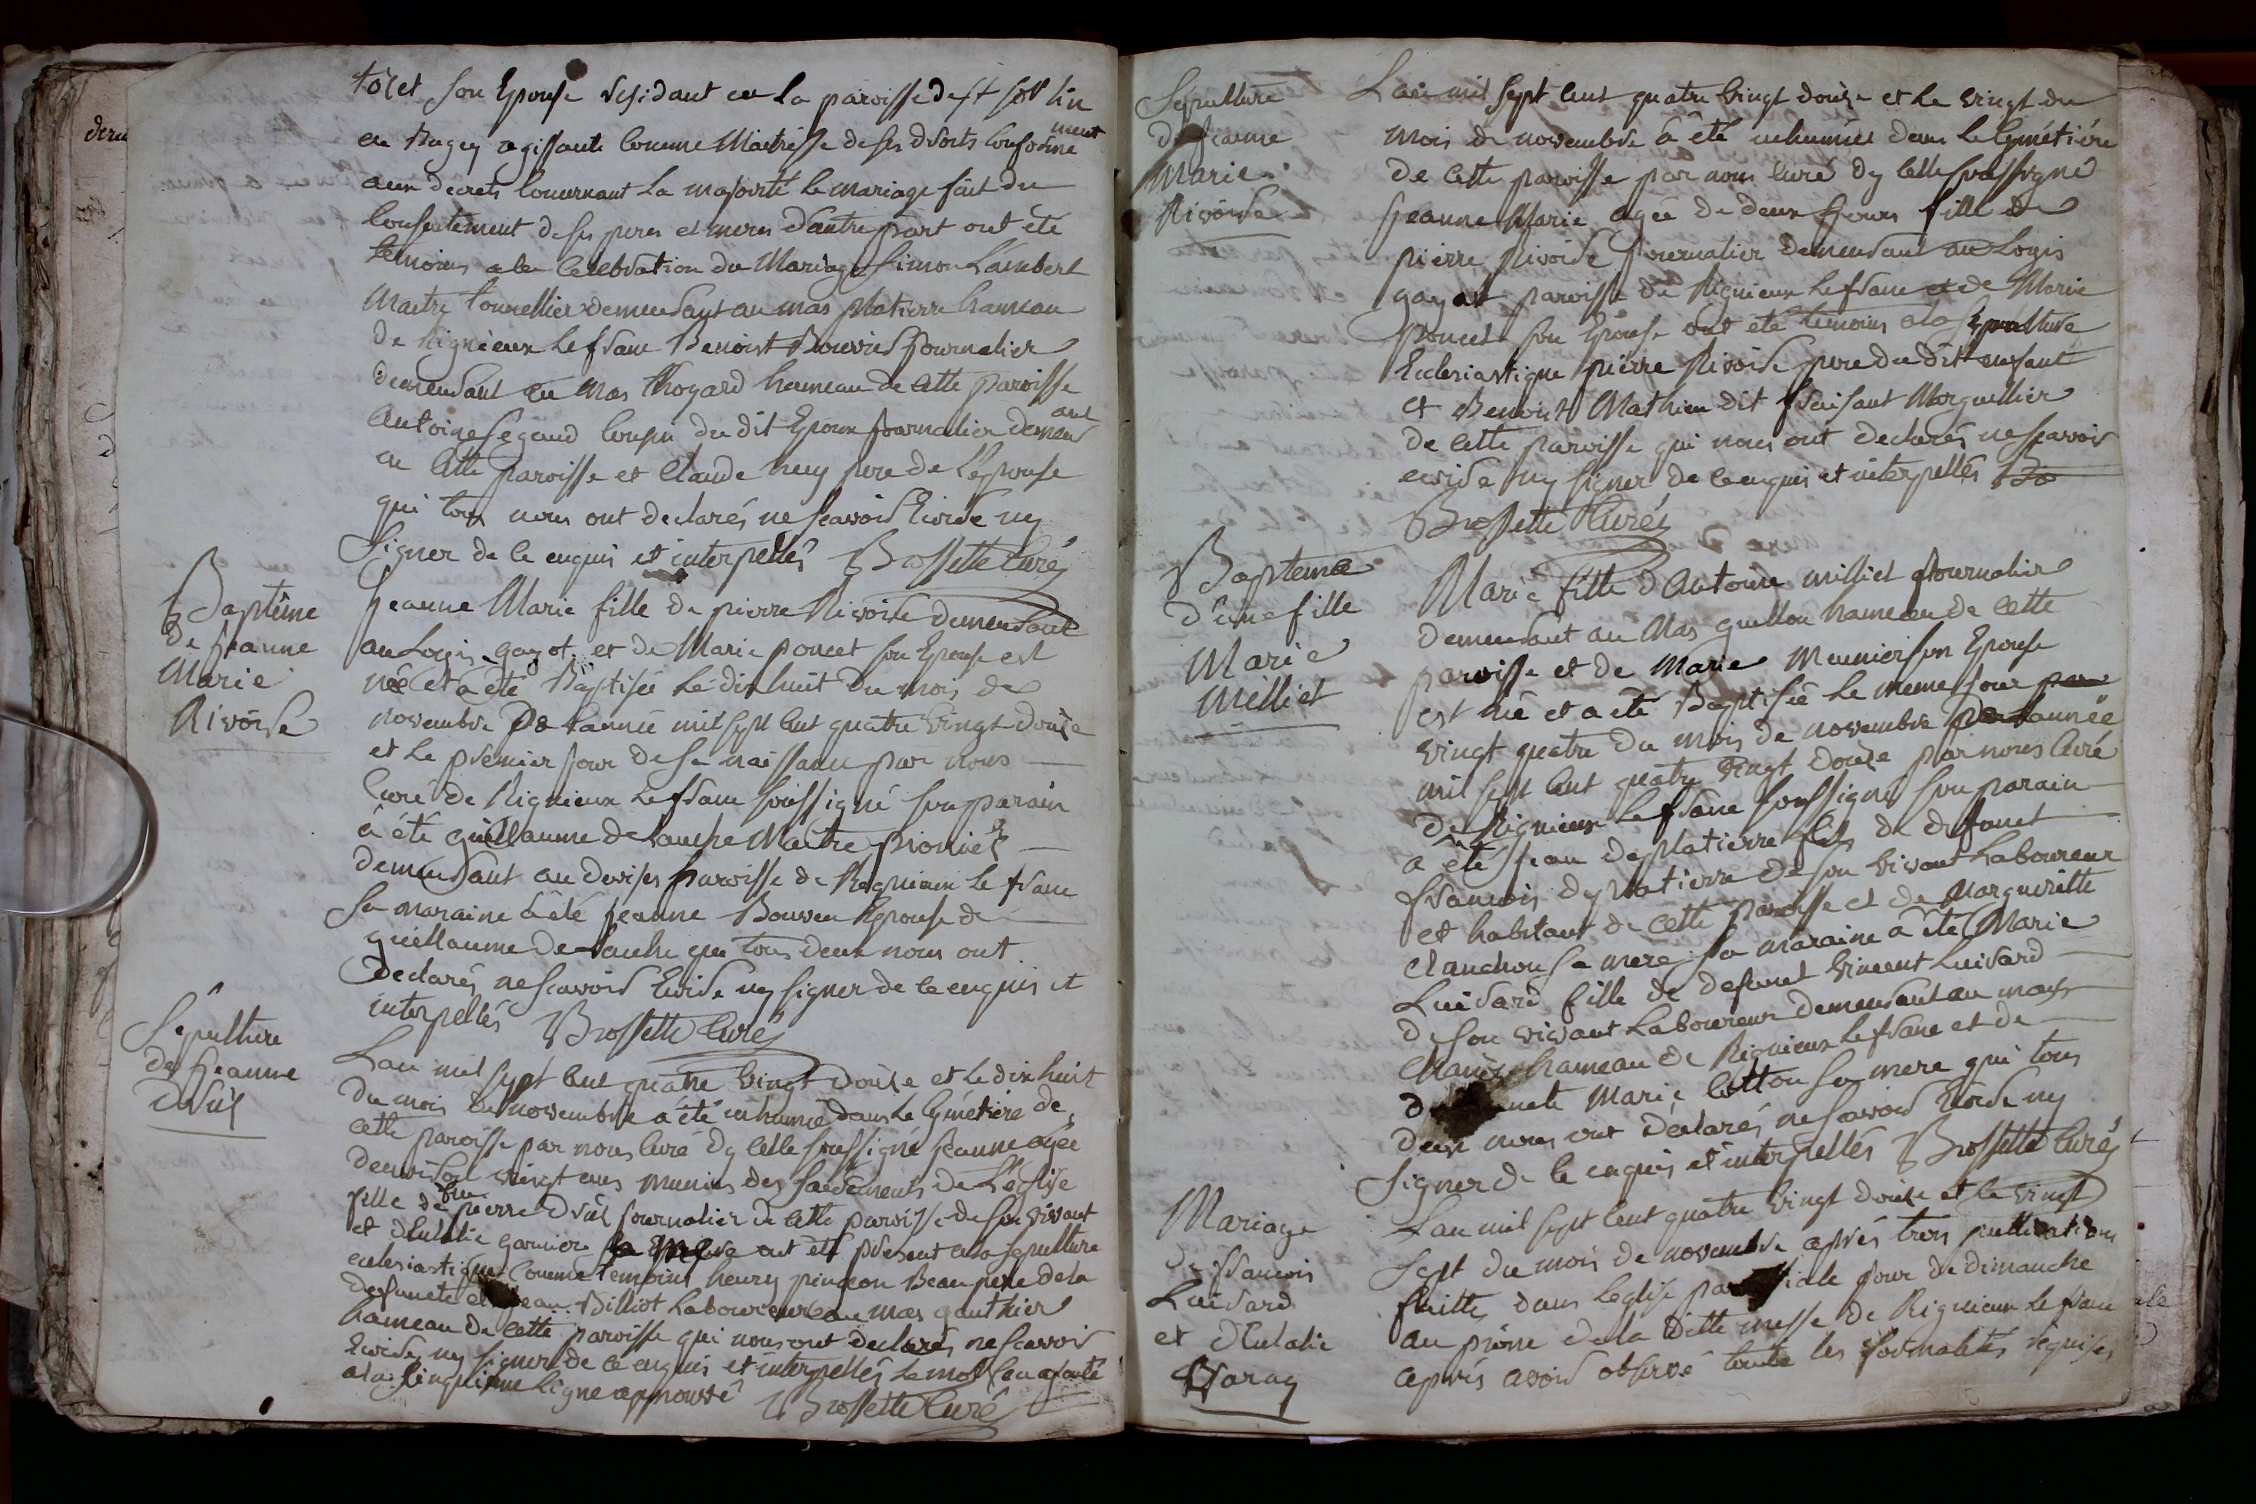 et son Epouse residant en la paroisse de st
en Bugey agissante comme Maitresse de ses droits conforme
ment
aux decrets concernant la majorité le mariage fait du
consentement de ses peres et meres d'autre part ont été
temoins a la Celebration du Mariage Simon Lambert
Maitre tonnellier demeurant au mas platierre hameau
de Rignieux le franc Benoist Bouvier journalier
demeurant au Mas Thogard hameau de cette paroisse
Antoine Segaud cousin du dit Epoux journalier demeur
ant
en cette paroisse et Claude pere de L'epouse
qui tous nous ont declarés ne scavoir Ecrire ny
Signer de ce enquis et interpellés Brossette Curé
Baptême
de Jeanne
Marie
Rivoire
Jeanne Marie fille de pierre Rivoire demeurant
au Logis gayot et de Marie poncet son Epouse est
née et a été Baptisée le dix huit du mois de
novembre De Lannée mil sept cent quatre vingt douze
et le premier jour de sa naissance par nous
Curé de Rignieux le franc soussigné son parain
à été guillaume Maitre
demeurant au devises paroisse de Rignieux le franc
Sa maraine à été Jeanne Epouse de
guillaume qui tous deux nous ont
Declarés ne scavoir Ecrire ny signer de ce enquis et
interpellés Brossette Curé
Sepulture
de Jeanne
Lan mil sept cent quatre vingt douze et le dix huit
du mois de novembre a été inhumée dans le Cymetiére de
cette paroisse par nous Curé dy celle soussigné Jeanne agée
denviron vingt ans munies des sacrements de L'église
fille de feu pierre journalier de cette paroisse de son vivant
et d'Eulalie garnier ont été present a la sepulture
eclesiastique comme temoins henry pingeon Beau pere de la
defuncte et jean Billiot Laboureur au mas gauthier
hameau de cette paroisse qui nous ont declarés ne scavoir
Ecrire ny signer de ce enquis et interpellés le mot feu ajouté
a la Cinquieme ligne approuvé Brossette Curé
Sepulture
de Jeanne
Marie
Rivoire
Lan mil sept cent quatre vingt douze et le vingt du
mois de novembre à été inhumée dans le Cymétiére
de cette paroisse par nous curé dy celle soussigné
Jeanne Marie agée de deux jours fille de
pierre Rivoire journalier demeurant au Logis
gayot paroisse de Rignieux le franc et de Marie
poncet son Epouse ont été temoins a la sepulture
Eclesiastique pierre Rivoire pere du dit enfant
et Benoist Mathieu dit Morguillier
de cette paroisse qui nous ont declarés ne scavoir
ecrire ny signer de ce enquis et interpellés
Brossette Curé
Bapteme
d'une fille
Marie
Milliet
Marie fille d'Antoine milliet journalier
demeurant au Mas guillon hameau de cette
paroisse et de Marie Meunier son Epouse
est née et a été Baptisée le meme jour
vingt quatre du mois de novembre de Lannée
mil sept cent quatre vingt douze par nous Curé
de Rignieux le franc soussigné son parain
a été jean desplatierre fils de defunct
françois desplatierre de son vivant Laboureur
et habitant de cette paroisse et de Marguerite
Clanchon sa mere sa maraine à été Marie
Luisard fille de defunct Vincent Luisard
de son vivant Laboureur demeurant au mas
hameau de Rignieux le franc et de
Marie Cotton sa mere qui tous
deux nous ont déclarés ne scavoir Ecrire ny
Signer de ce enquis et interpellés Brossette Curé
Mariage
de françois
Luisard
et d'Eulalie
Varay
Lan mil sept cent quatre vingt douze et le vingt
sept du mois de novembre aprés trois publications
faittes dans leglise paroissiale jour de dimanche
au prône de la ditte messe de Rignieux le franc
aprés avoir observé toutes les formalités requises